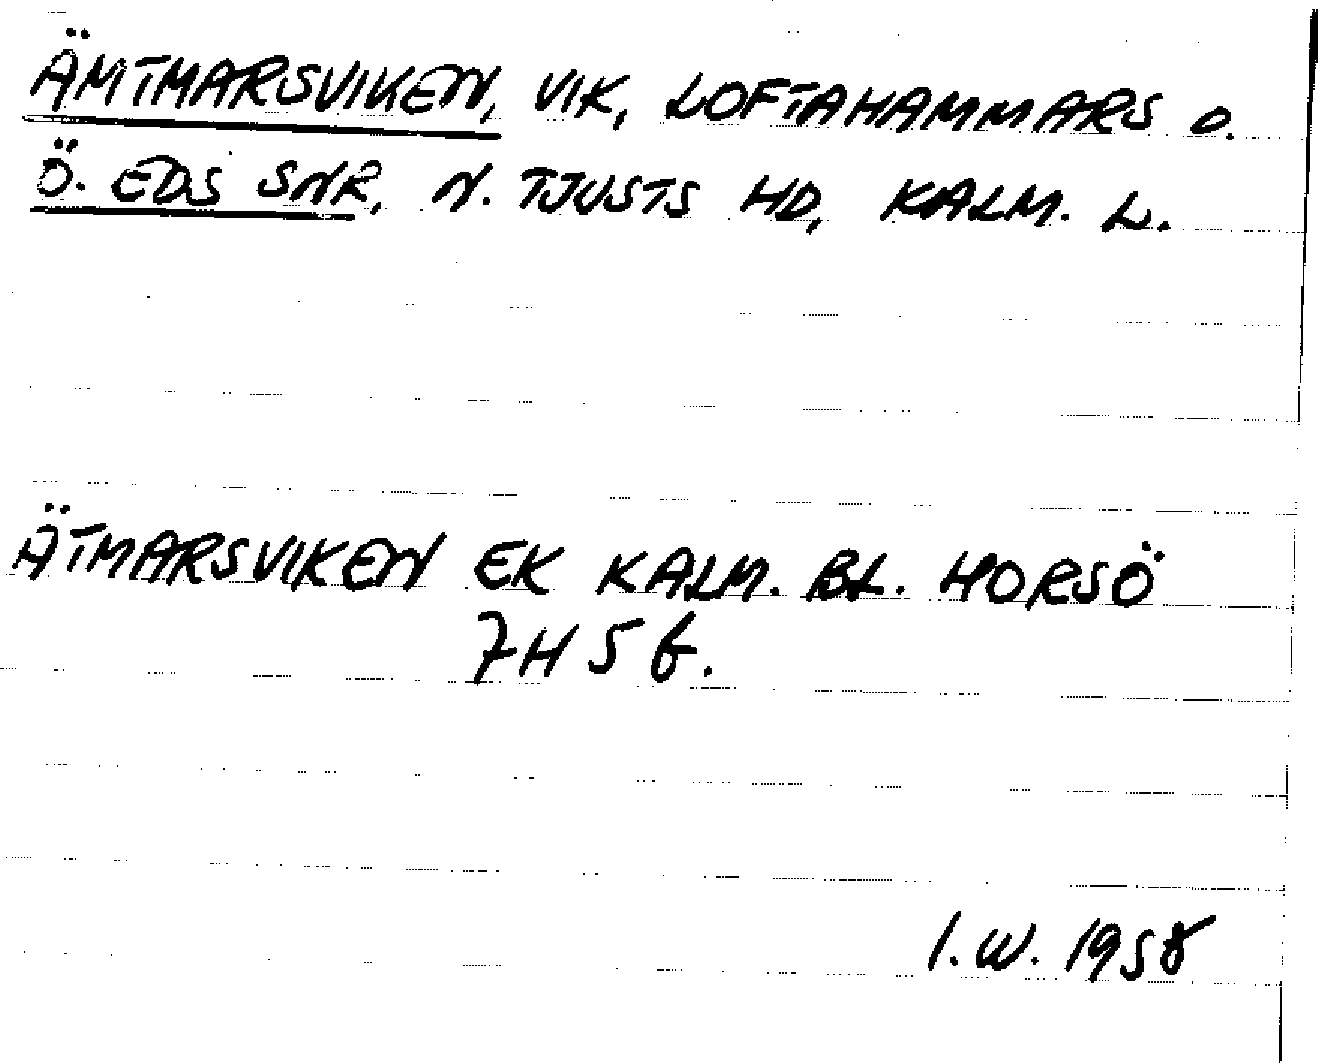 ÄMTMARSVIKEN, VIK, LOFTAHAMMARS O.
Ö. EDS SNR, N. TJUSTS HD, KALM. L.
ÄTMARSVIKEN EK KALM. BL. HORSÖ
7H 5 f.
I.W. 1958